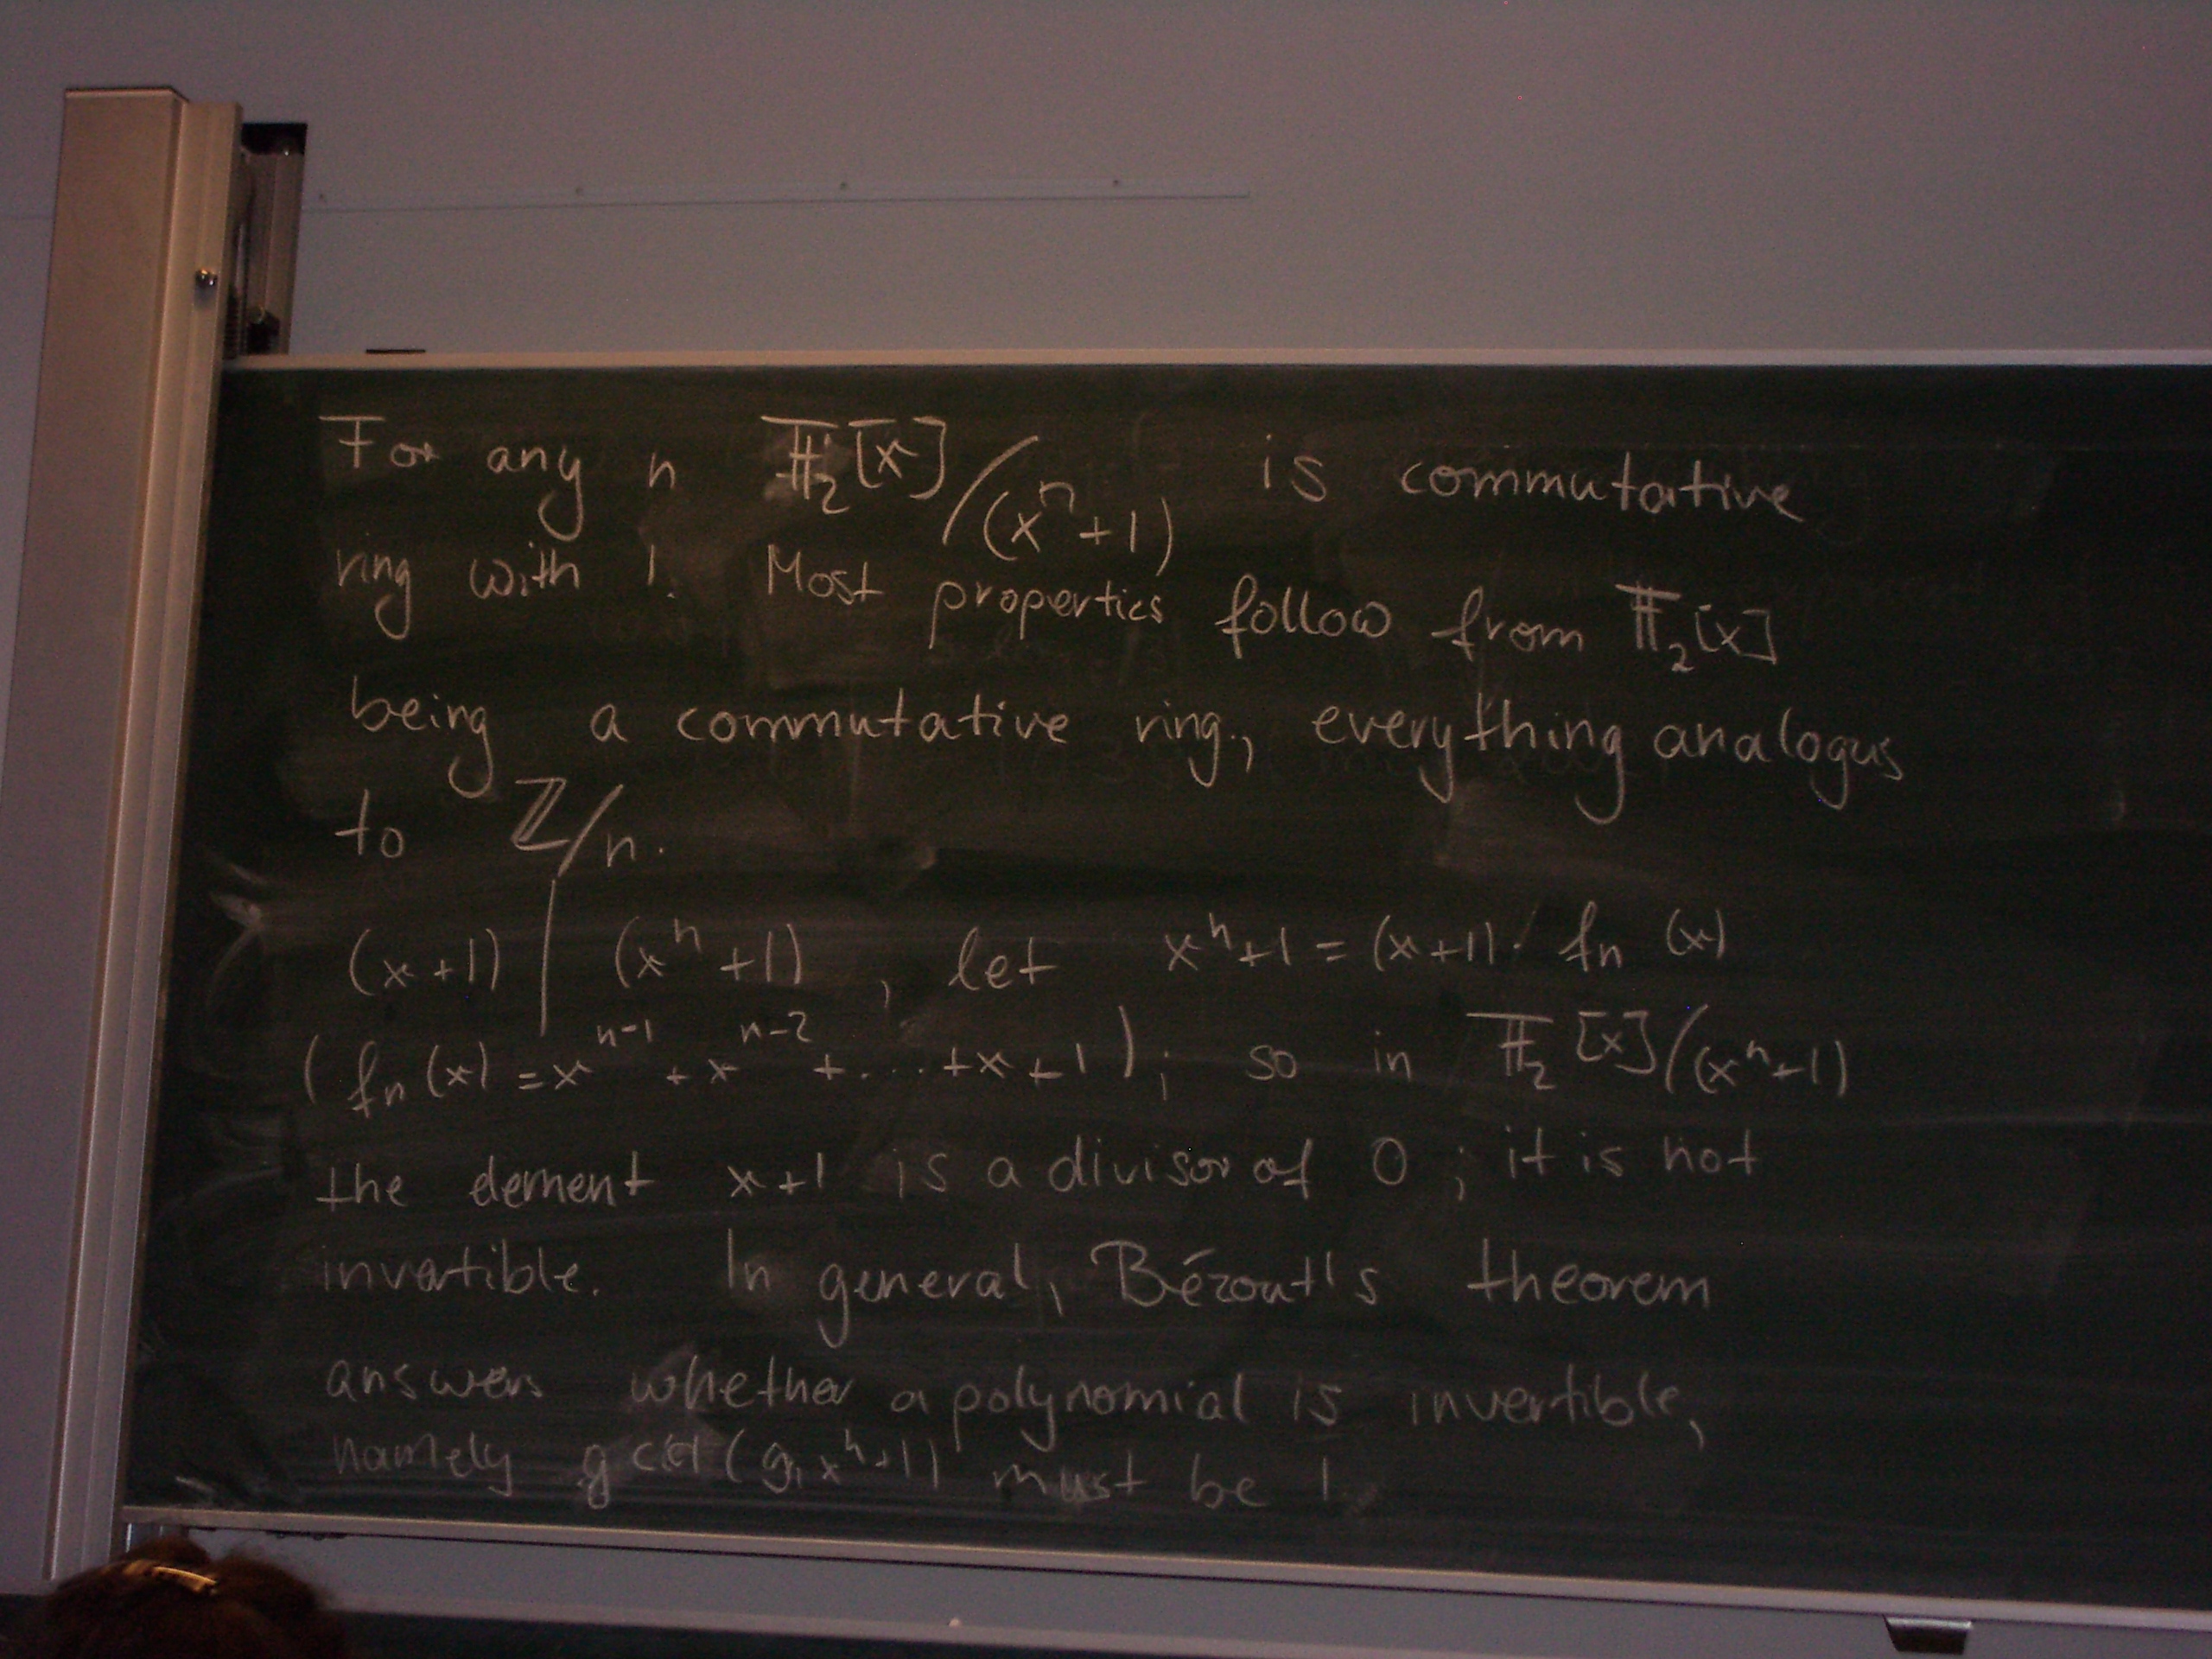 For any n 𝔽₂[x]/(xⁿ+1) is commutative
ring with 1. Most properties follow from 𝔽₂[x]
being a commutative ring, everything analogus
to ℤ/n.
(x+1) | (xⁿ+1), let xⁿ+1 = (x+1)· fn (x)
(fn(x) = xⁿ⁻¹ + xⁿ⁻² + ... + x + 1); so in 𝔽₂[x]/(xⁿ+1)
the element x+1 is a divisor of 0; it is not
invertible. In general, Bézout's theorem
answers whether a polynomial is invertible,
namely gcd(g, xⁿ+1) must be 1.